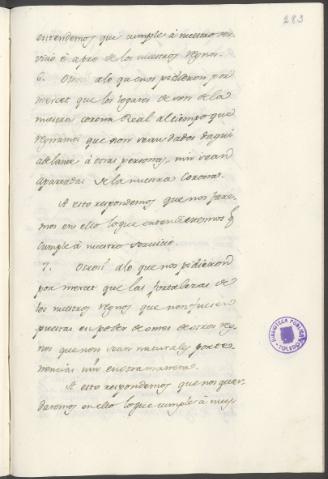 283
entendemos, que cumple á nuestro ser-
vicio é a pro de los nuestros regnos.
6. Otrosí alo que nos pidieron por
mercet que los logares de son de la
nuestra corona Real al tiempo que
regnamos que non sean dados daqui
adelante á otras personas, nin sean
apartados de la nuestra Corona.
A esto respondemos que nos fare-
mos en ello lo que entendieremos q.
cumple á nuestro servicio.
7. Otrosi á lo que nos pidieron
por mercet que las fortalezas de
los nuestros regnos que non fuesen
puestas en poder de omes de otros reg-
nos que non sean naturales por te-
nencias nin en otra manera.
A esto respondemos que nos guar-
daremos en ello lo que cumple á nues-
BIBLIOTECA PUBLICA
TOLEDO